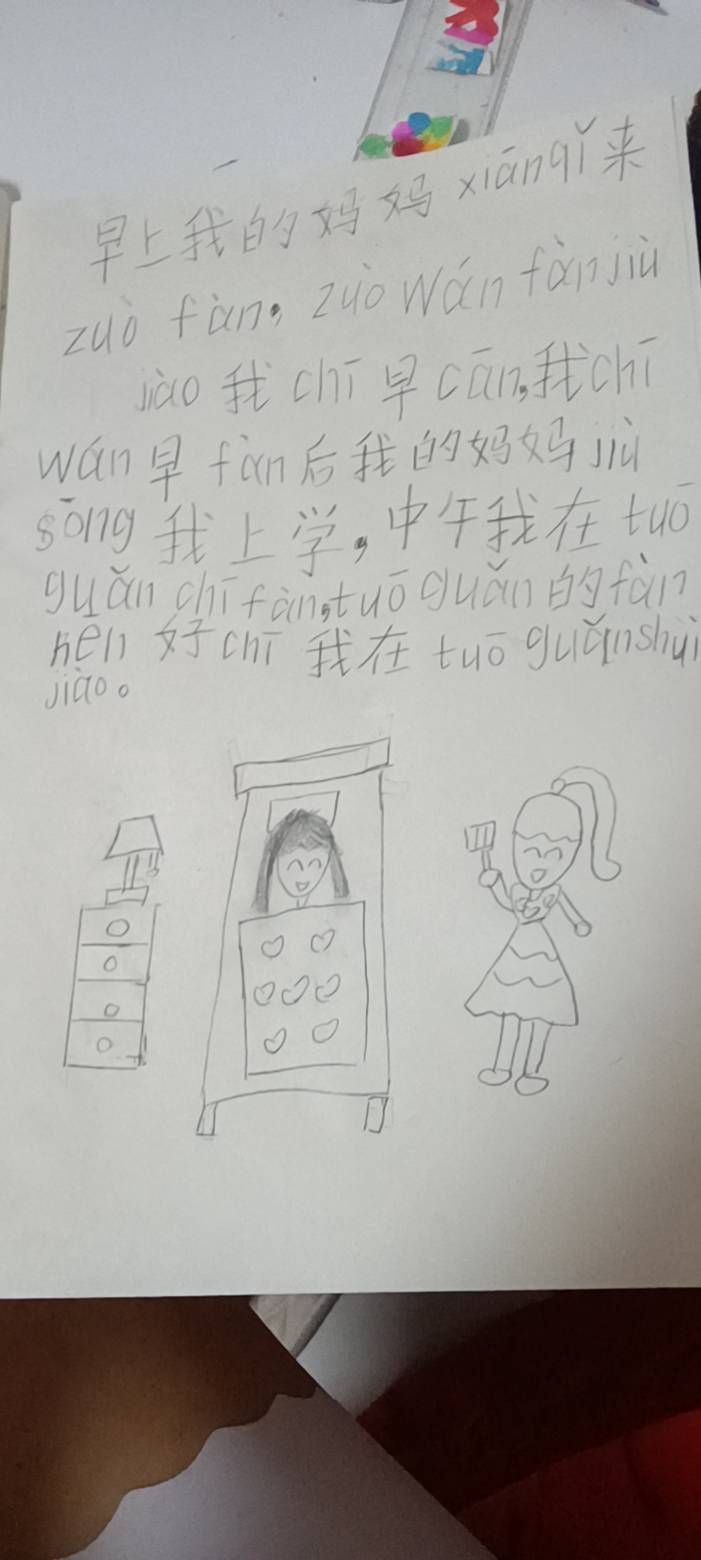 早上我的妈妈 xiānqǐ来
zuò fàn，zuò wán fàn jiù
jiào 我 chī 早 cān，我 chī
wán 早 fàn 后我的妈妈 jiù
sōng 我上学，中午我在 tuō
guǎn chī fàn，tuō guǎn 的 fàn
hēn 好 chī 我在 tuō guǎn shuì
jiào。